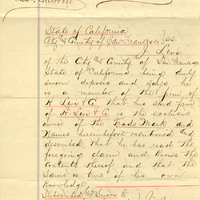 State of California
City & County of San Francisco } ss.
of the City & County of San Francisco
State of California being duly
sworn deposes and says he
is a member of the firm of
H. Levi & Co. that his said firm
of H. Levi & Co. is the exclusive
owner of the Trade Mark and
Names hereinbefore mentioned and
described that he has read the
foregoing claim and knows the
contents thereof and that the
same is true of his own
knowledge
Subscribed & Sworn to